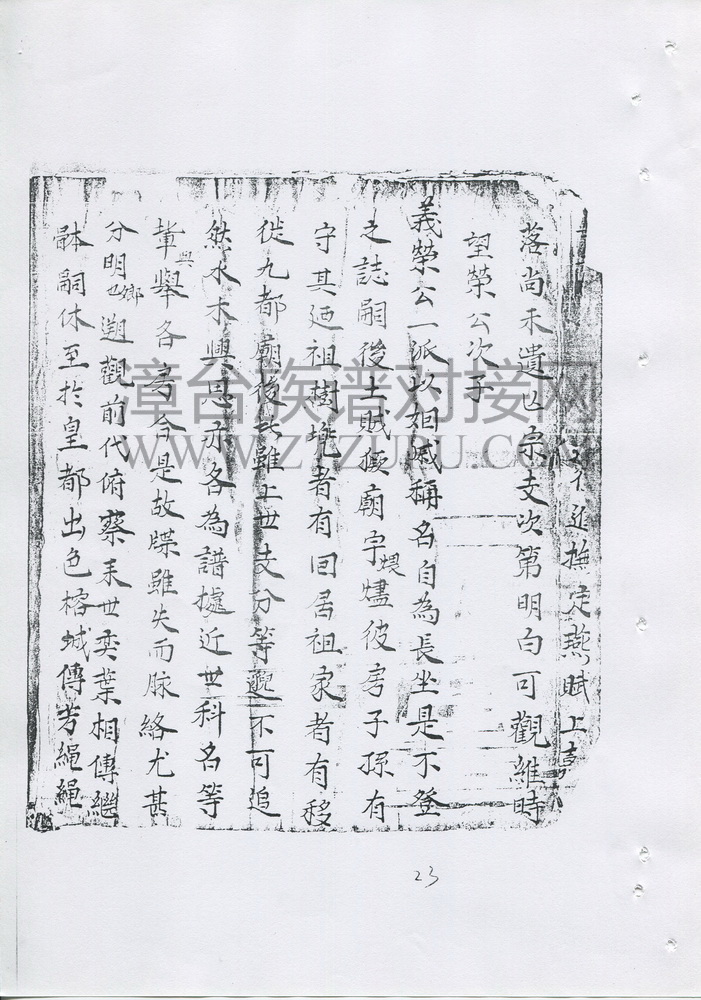 不近撫定燕賦上
落尚未遺亡宗支次第明白可觀維時
望榮公次子
義榮公一派以姻戚稱名自為長坐是不登
之誌嗣後土賊猴廟字煨燼彼房子孫有
守其廼祖樹塋者有回居祖家者有移
徙九都廟後此雖上世支分等邈不可追
然水木興思亦各為譜據近世科名等
輩與舉各考合是故牒雖失而脉絡尤甚
分明也鄉遡觀前代俯察来世奕葉相傳繼
緜嗣休至於皇都出色榕城傳芳繩繩
23
漳台族谱对接网
WWW.ZTZUPU.COM